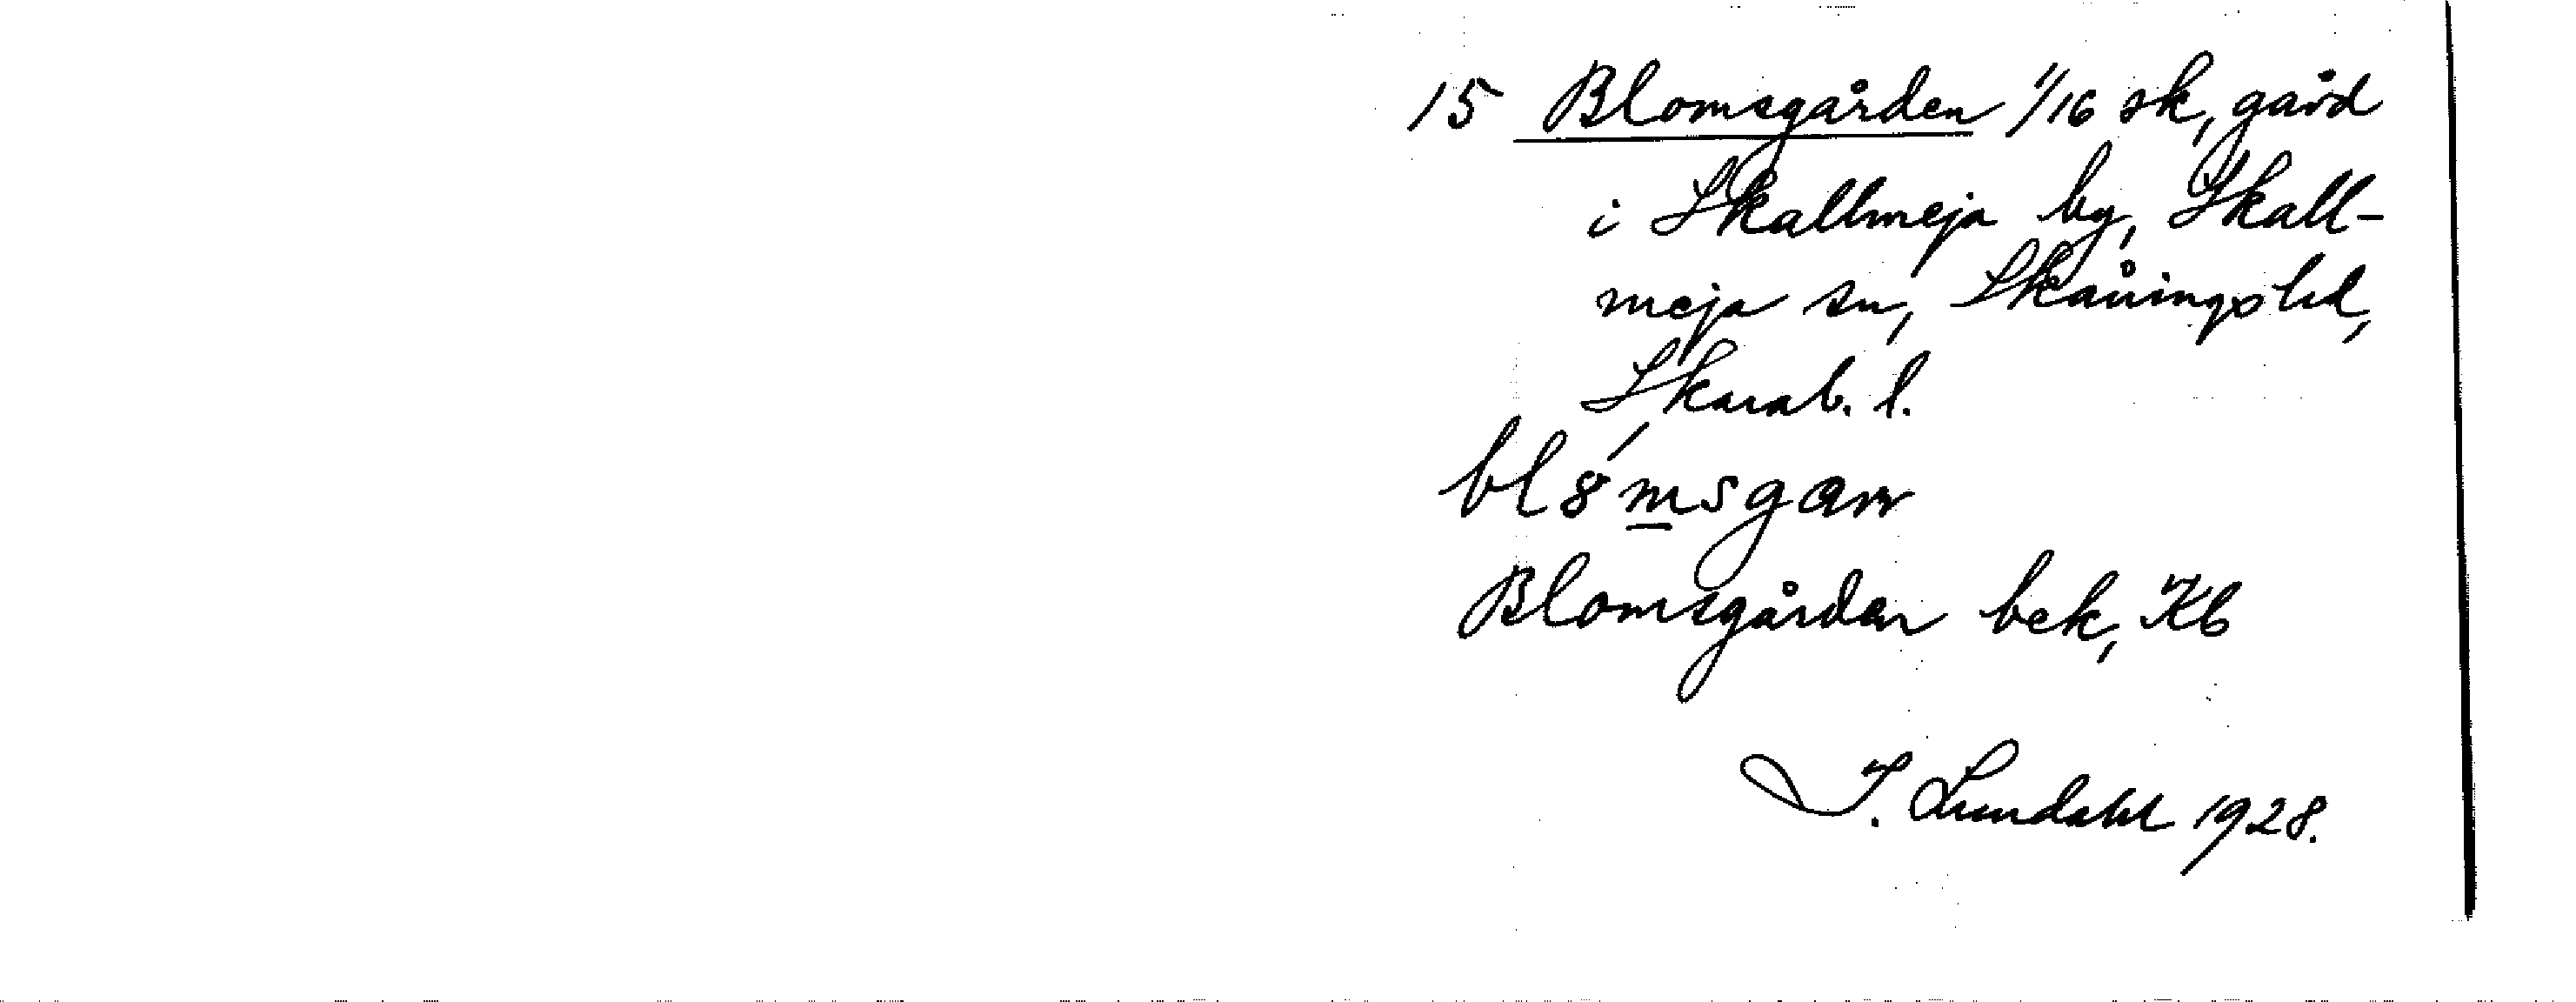 15 Blomsgården 1/16 sk, gård
i Skallmeja by, Skall-
meja sn, Skånings hd,
Skarab. l.
bl8́msgaɹ
Blomsgården bek, Kb
I. Lundahl 1928.